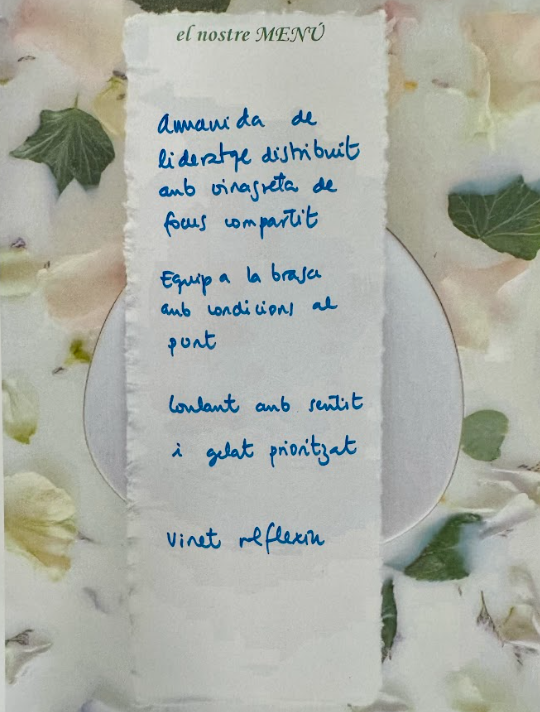 el nostre MENÚ
Amanida de
lideratge distribuït
amb vinagreta de
focus compartit
Equip a la brasa
amb condicions al
punt
Coulant amb sentit
i gelat prioritzat
Vinet reflexiu